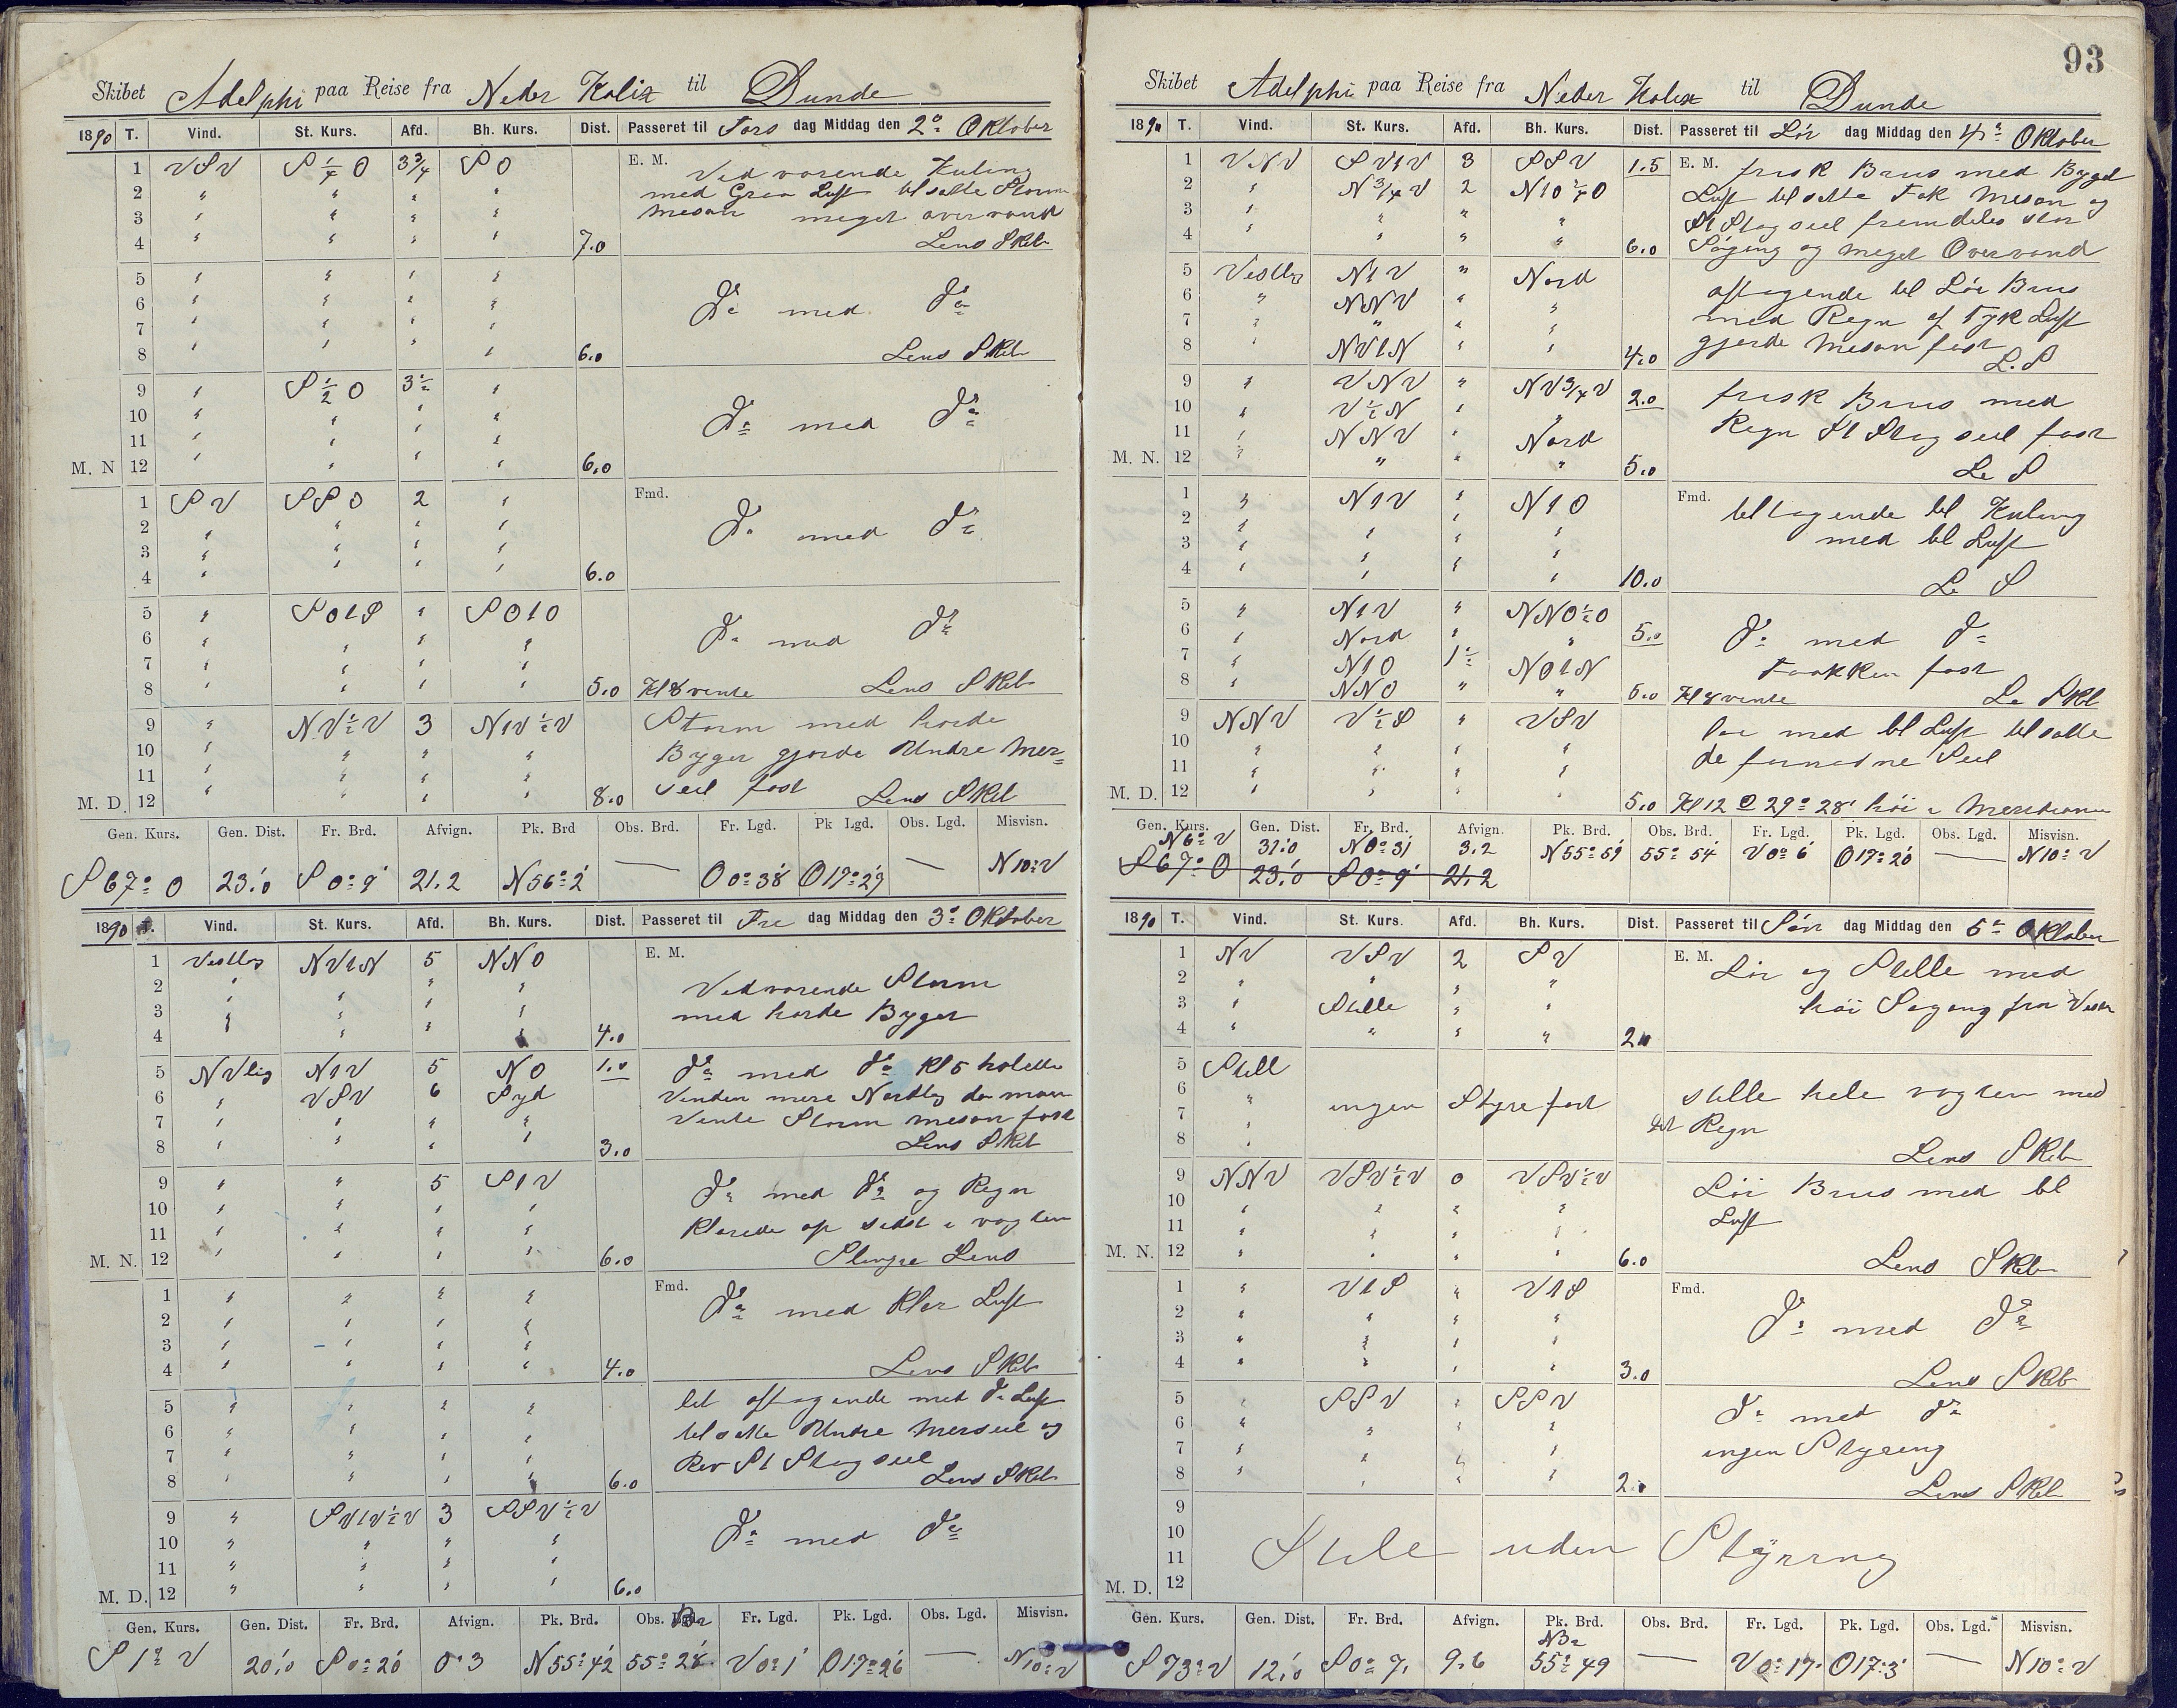 Skibet Adelphi paa Reise fra Neder Kalix til Dunde
1890 T. Vind. St. Kurs. Afd. Bh. Kurs. Dist. Passeret til Tors dag Middag den 2° Oktober
1 VSV S 1/4 O 3 3/4 SO E. M. Vedvarende Kuling
2 " " " " med Graa Luft tilsatte Storm
3 " " " " Mesan meget overvand
4 " " " " 7.0 Lens Skib
5 " " " "
6 " " " " Do med Do
7 " " " "
8 " " " " 6.0 Lens Skib
9 " S 1/2 O 3 1/2 "
10 " " " " Do med Do
11 " " " "
M. N 12 " " " " 6.0
1 SV SSO 2 " Fmd.
2 " " " " Do med Do
3 " " " "
4 " " " " 6.0
5 " SO1S " SO1O
6 " " " " Do med Do
7 " " " "
8 " " " " 5.0 Kl 8 vente Lens Skib
9 " NV 1/2 V 3 N1V 1/2 V Storm med haarde
10 " " " " Byger gjorde Undre Mer=
11 " " " " seil fast
M. D. 12 " " " " 8.0 Lens Skib
Gen. Kurs. Gen. Dist. Fr. Brd. Afvign. Pk. Brd Obs. Brd. Fr. Lgd. Pk Lgd. Obs. Lgd. Misvisn.
S 67° O 23.'0 S 0° 9' 21.2 N 56° 2' — O 0° 38' O 17° 27' — N 10° V
1890 T. Vind. St. Kurs. Afd. Bh. Kurs. Dist. Passeret til Fre dag Middag den 3° Oktober
1 Vestlig NV1N 5 NNO E. M.
2 " " " " Vedvarende Storm
3 " " " " med harde Byger
4 " " " " 4.0
5 NVlig N1V 5 NO 1.0 Do med Do Kl 5 halede
6 " VSV 6 Syd Vinden mere Nordlig da maa
7 " " " " Vente Storm mesan fast
8 " " " " 3.0 Lens Skib
9 " " 5 S1V Do med Do og Regn
10 " " " "
11 " " " " Klarede op sidst i vagten
M. N. 12 " " " " 6.0 Slingre Lens
1 " " " " Fmd. Do med Klar Luft
2 " " " "
3 " " " "
4 " " " " 4.0 Lens Skib
5 " " " " lit aftagende med Do Luft
6 " " " " tilsatte Undre Merseil og
7 " " " " Rev St Stagseil
8 " " " " 6.0 Lens Skib
9 " SV1V 1/2 V 3 SSV 1/2 V
10 " " " " Do med Do
11 " " " "
M. D. 12 " " " " 6.0
Gen. Kurs. Gen. Dist. Fr. Brd. Afvign. Pk. Brd. Obs. Brd. Fr. Lgd. Pk. Lgd. Obs. Lgd. Misvisn.
S 1° V 20.'0 S 0° 20' 0°3 N 55° 42' 55° 28' V 0° 1' O 17° 26' — N 10° V
93
Skibet Adelphi paa Reise fra Neder Kalix til Dunde
1890 T. Vind. St. Kurs. Afd. Bh. Kurs. Dist. Passeret til Lør dag Middag den 4° Oktober
1 VNV SV1V 3 SSV 1.5 E. M. frisk Bris med Bygel
2 " N 3/4 V 2 N1O 1/4 O Luft tilsatte Fok Mesan og
3 " " " " St Stagseil fremdeles stor
4 " " " " 6.0 Søgang og meget Overvand
5 Vestlig N1V " Nord aftagende til Lør Bris
6 " NNV " " med Regn af Tyk Luft
7 " " " "
8 " NV1N " " 4.0 gjorde Mesan fast L. S
9 " VNV " NV 3/4 V 2.0 frisk Bris med
10 " V 1/2 N " "
11 " NNV " Nord Regn St Stagseil fast
M. N. 12 " " " " 5.0 Le S
1 " N1V " N1O Fmd. tiltagende til Kuling
2 " " " "
3 " " " " med bl Luft
4 " " " " 10.0 Le S
5 " N1V " NNO 1/2 O
6 " Nord " " 5.0 Do med Do
7 " N1O 1 1/2 NO1N Fokken fast
8 " NNO " " 5.0 Kl 8 vente Le Skb
9 NNV V 1/2 S " VSV lør med bl Luft tilsatte
10 " " " "
11 " " " " de fornødne Seil
M. D. 12 " " " " 5.0 Kl 12 29° 28' høi i Meridianen
Gen. Kurs. Gen. Dist. Fr. Brd. Afvign. Pk. Brd. Obs. Brd. Fr. Lgd. Pk. Lgd. Obs. Lgd. Misvisn.
N 6° V 31.'0 N 0° 31' 3.2 N 55° 59' 55° 54' V 0° 6' O 17° 20' — N 10° V
S 67° O 23.'0 S 0° 9' 21.2
1890 T. Vind. St. Kurs. Afd. Bh. Kurs. Dist. Passeret til Søn dag Middag den 5° Oktober
1 NV VSV 2 SV E. M. Lør og Stille med
2 " " " "
3 " Stille " " høi Søgang fra Vesten
4 " " " " 2.0
5 Still
6 " ingen Styrefart stille hele vagten med
7 " Regn
8 " Lens Skib
9 NNV VSV 1/2 V 0 VSV 1/2 V Lør Bris med bl
10 " " " " Luft
11 " " " "
M. N. 12 " " " " 6.0 Lens Skib
1 " V1S " V1S Fmd.
2 " " " " Do med Do
3 " " " "
4 " " " " 3.0 Lens Skib
5 " SSV " SSV Do med Do
6 " " " "
7 " " " " ingen Styring
8 " " " " 2.0 Lens Skib
9
10 Stille uden Styring
11
M. D. 12
Gen. Kurs. Gen. Dist. Fr. Brd. Afvign. Pk. Brd. Obs. Brd. Fr. Lgd. Pk. Lgd. Obs. Lgd. Misvisn.
S 73° V 12.'0 S 0° 7' 9.6 55° 49 — V 0° 17' O 17° 3' — N 10° V